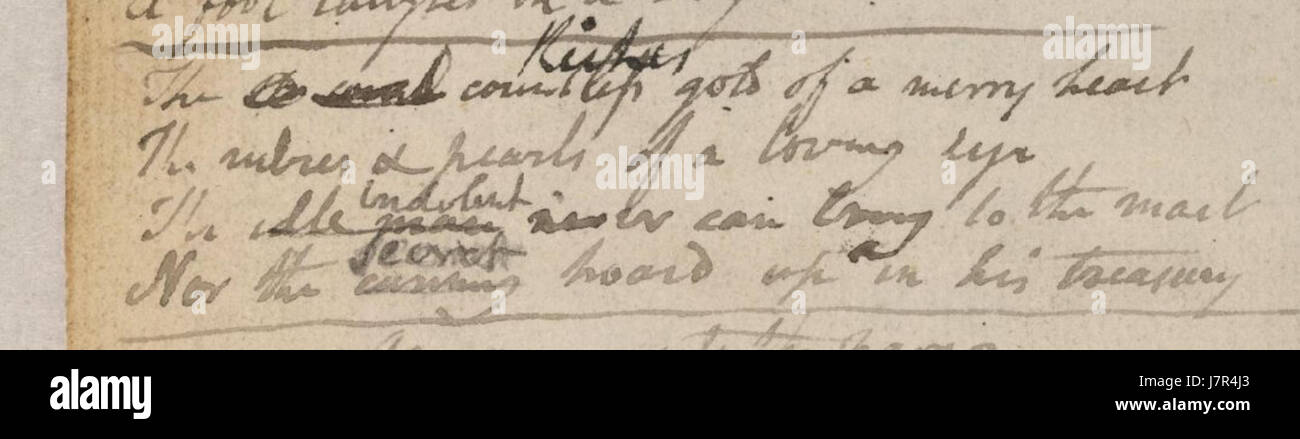 The countless gold of a merry heart
The rubies & pearls of a loving eye
indolent
The idle man never can bring to the mart
secret
Nor the cunning hoard up in his treasury
alamy
Image ID: J7R4J3
www.alamy.com